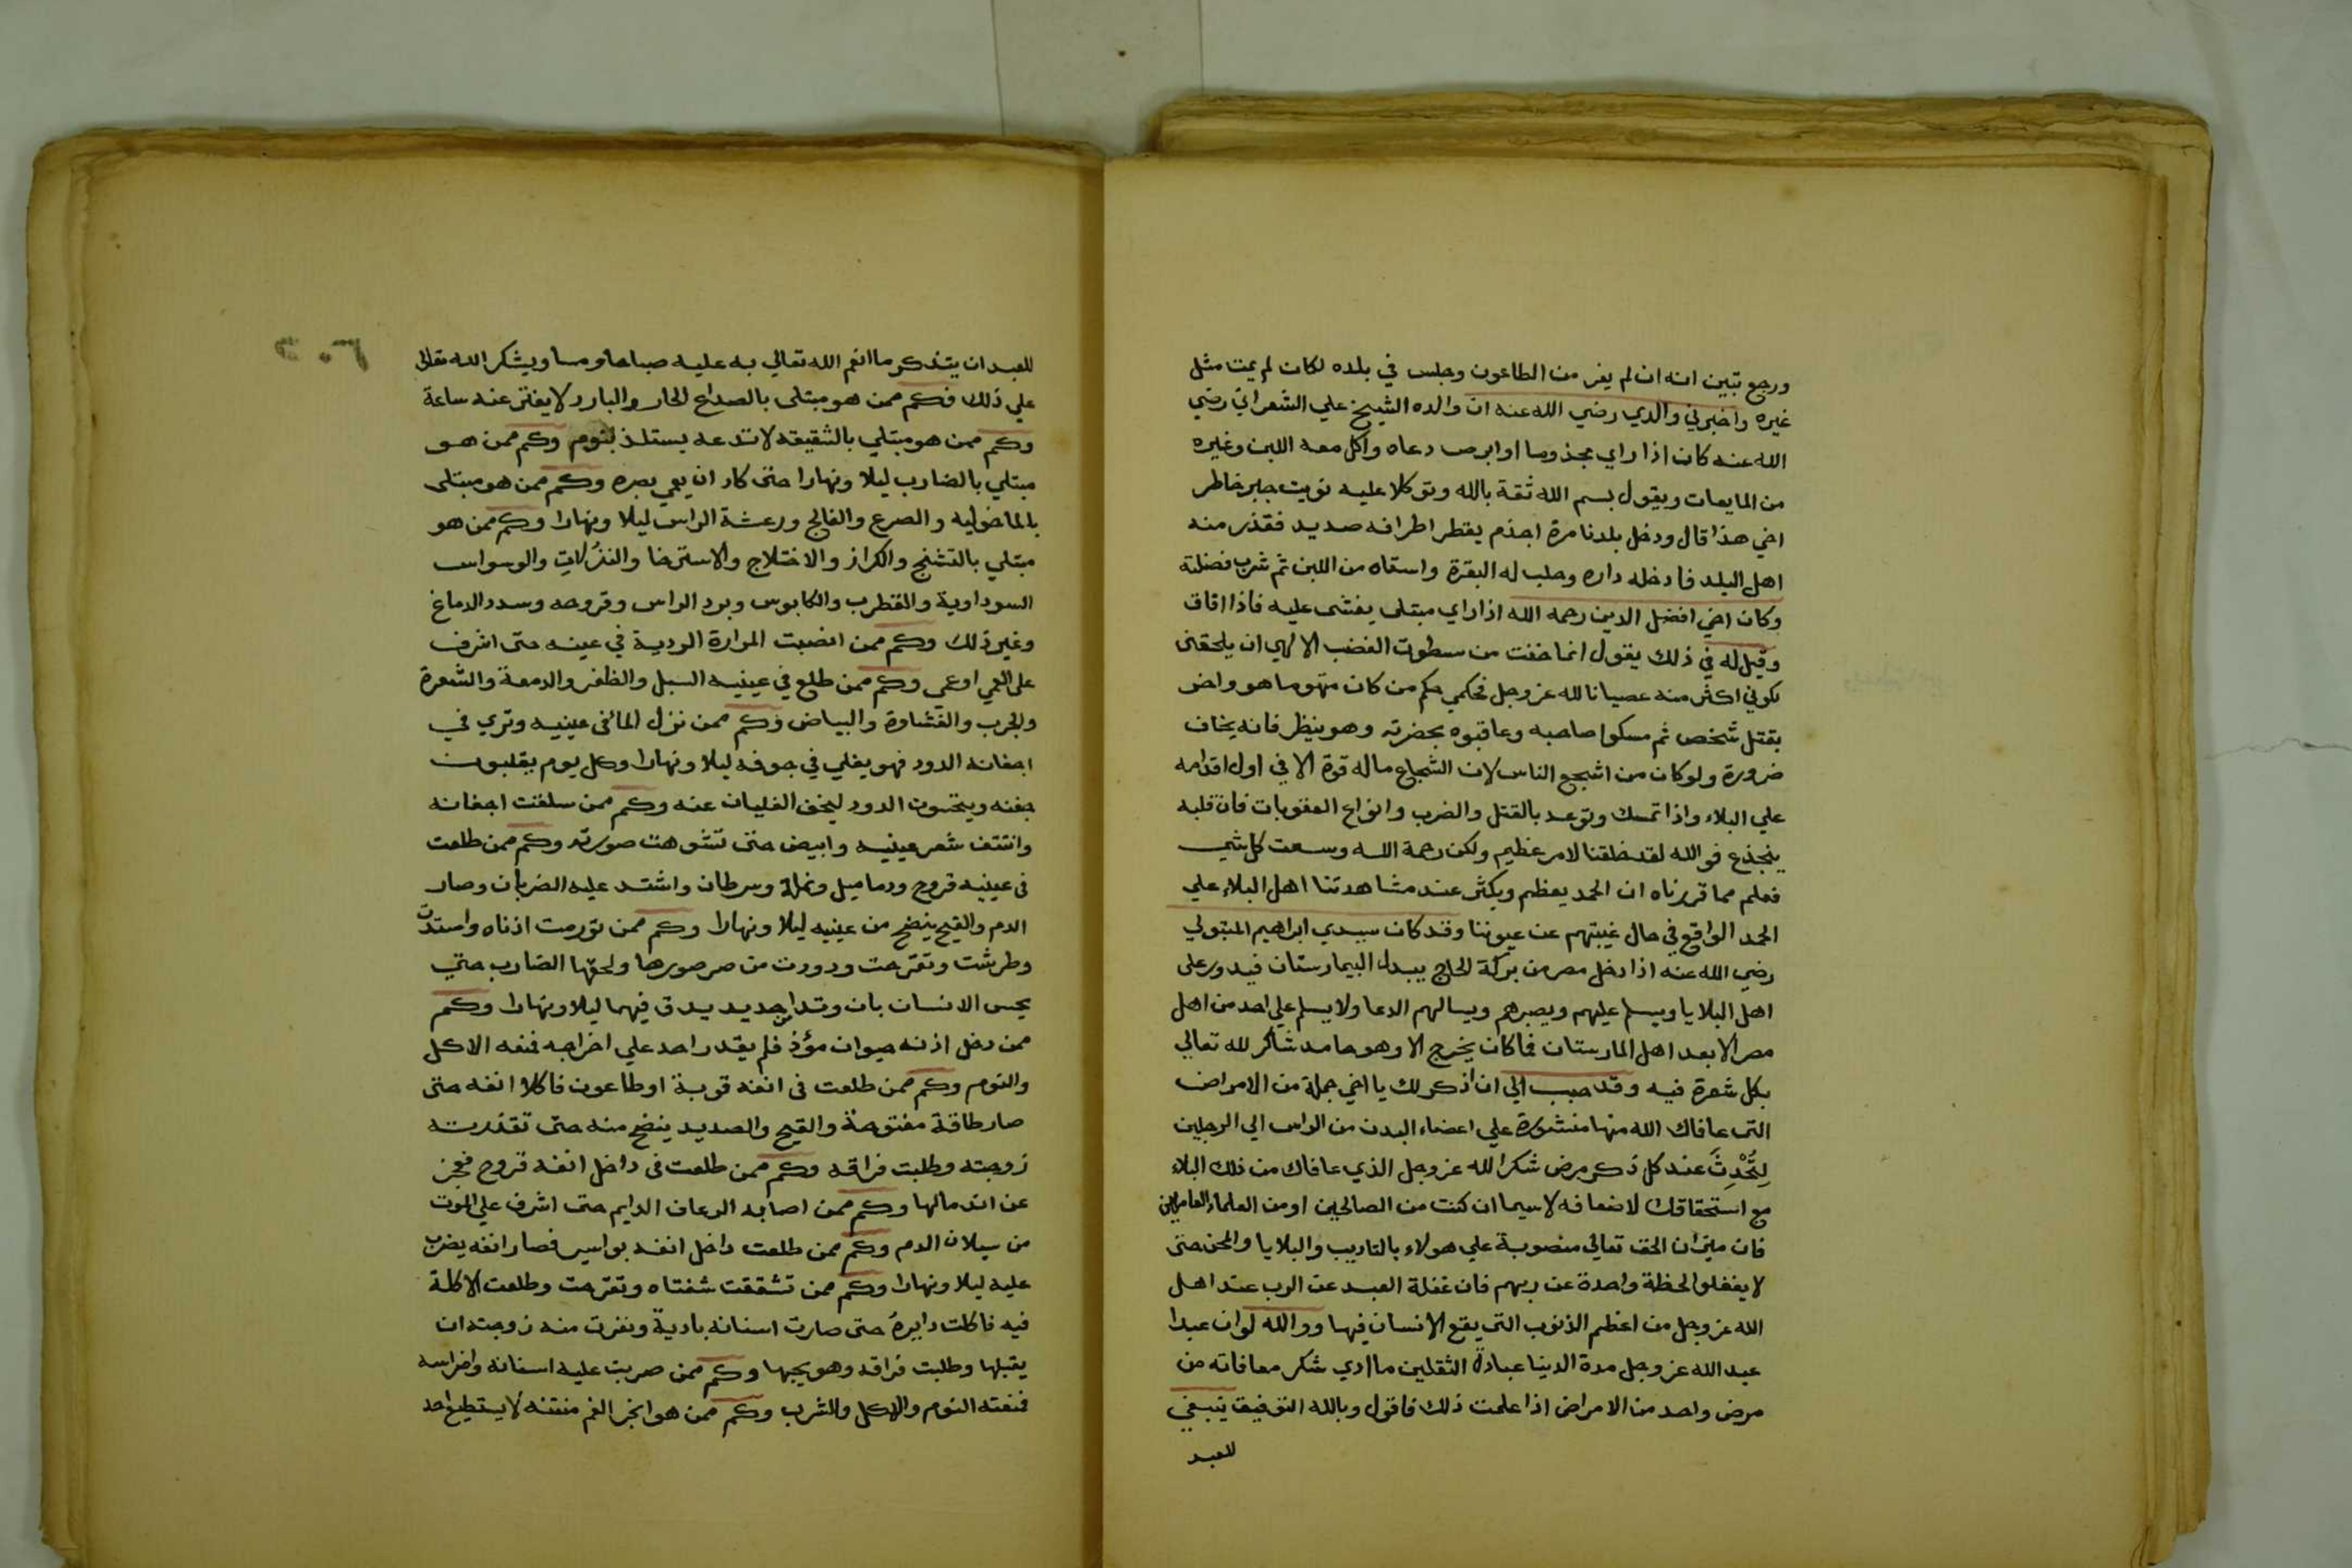 ورجع تبين انه ان لم يفر من الطاعون وجلس في بلده لكان لم يمت مثل
غيره واخبرني والدي رضي الله عنه ان والده الشيخ علي الشعراني رضي
الله عنه كان اذا راي مجذوما او ابرص دعاه واكل معه اللبن وغيره
من المايعات ويقول بسم الله ثقة بالله وتوكلا عليه نويت جبر خاطر
اخي هذا قال ودخل بلدنا مرة اجذم يقطر اطرافه صديد فقذر منه
اهل البلد فادخله داره وحلب له البقرة واسقاه من اللبن ثم شرب فضلته
وكان اخي افضل الدين رحمه الله اذا راي مبتلى يغشى عليه فاذا افاق
وقيل له في ذلك يقول انما خفت من سطوت الغضب الالهي ان يلحقنى
لكوني اكثر منه عصيانا لله عز وجل فحكمي حكم من كان متهوما هو واخر
بقتل شخص ثم مسكوا صاحبه وعاقبوه بحضرته وهو ينظر فانه يخاف
ضرورة ولو كان من اشجع الناس لان الشجاع ماله قوة الا في اول اقدامه
علي البلاء واذا تمسك وتوعد بالقتل والضرب وانواع العقوبات فان قلبه
ينجذع فوالله لقد خلقنا لامر عظيم ولكن رحمة الله وسعت كل شي
فعلم مما قررناه ان الحمد يعظم ويكثر عند مشاهدتنا اهل البلاء علي
الحمد الواقع في حال غيبتهم عن عيوننا وقد كان سيدي ابراهيم المتبولي
رضي الله عنه اذا دخل مصر من بركة الحاج يبدا البيمارستان فيدور على
اهل البلايا ويسلم عليهم ويصبرهم ويسالهم الدعا ولا يسلم علي احد من اهل
مصر الا بعد اهل المارستان فما كان يخرج الا وهو حامد شاكر لله تعالي
بكل شعرة فيه وقد حبب الي ان اذكر لك يا اخي جملة من الامراض
التى عافاك الله منها منشورة علي اعضاء البدن من الراس الي الرجلين
لِتُحْدِثَ عند كل ذكر مرض شكرا لله عز وجل الذي عافاك من ذلك البلاء
مع استحقاقك لاضعافه لاسيما ان كنت من الصالحين او من العلماء العاملين
فان ميزان الحق تعالي منصوبة علي هولاء بالتاديب والبلايا والمحن حتى
لا يغفلوا لحظة واحدة عن ربهم فان غفلة العبد عن الرب عند اهل
الله عز وجل من اعظم الذنوب التى يقع الانسان فيها ووالله لو ان عبدا
عبد الله عز وجل مدة الدنيا عبادة الثقلين ما ادي شكر معافاته من
مرض واحد من الامراض اذا علمت ذلك فاقول وبالله التوفيق ينبغي
للعبد
للعبد ان يتذكر ما انعم الله تعالي به عليه صباحا ومسا ويشكر الله تعالى
علي ذلك فكم ممن هو مبتلى بالصداع الحار والبارد لا يفتر عنه ساعة
وكم ممن هو مبتلي بالشقيقه لا تدعه يستلذ بنوم وكم ممن هو
مبتلي بالضارب ليلا ونهارا حتى كاد ان يعمي بصره وكم ممن هو مبتلى
بالماخوليه والصرع والفالج ورعشة الراس ليلا ونهارا وكم ممن هو
مبتلي بالتشنج والكزاز والاختلاج والاسترخا والنزلات والوسواس
السوداوية والقطرب والكابوس وبرد الراس وقروحه وسدد الدماغ
وغير ذلك وكم ممن انصبت المرارة الردية في عينه حتى اشرف
على العمي او عمي وكم ممن طلع في عينيه السبل والظفر والدمعة والشعرة
والجرب والغشاوة والبياض وكم ممن نزل الما فى عينيه وتربي في
اجفانه الدود فهو يغلي في جوفه ليلا ونهارا وكل يوم يقلبون
جفنه وينحتون الدود ليخف الغليان عنه وكم ممن سلقت اجفانه
وانتتف شعر عينيه وابيض حتى تشوهت صورته وكم ممن طلعت
فى عينيه قروح ودماميل ونملة وسرطان واشتد عليه الضربان وصار
الدم والقيح ينضح من عينيه ليلا ونهارا وكم ممن تورمت اذناه واستدت
وطرشت وتقرحت ودودت من صرصورها ولحقها الضارب حتي
يحس الانسان بان وتدا من حديد يدق فيهما ليلا ونهارا وكم
ممن دخل اذنه حيوان مؤذ فلم يقدر احد علي اخراجه فمنعه الاكل
والنوم وكم ممن طلعت فى انفه قوبة او طاعون فاكلا انفه حتى
صار طاقة مفتوحة والقيح والصديد ينضح منه حتى تقذرته
زوجته وطلبت فراقه وكم ممن طلعت فى داخل انفه قروح فعجز
عن اندمالها وكم ممن اصابه الرعاف الدايم حتى اشرف علي الموت
من سيلان الدم وكم ممن طلعت داخل انفه بواسير فصار انفه يضرب
عليه ليلا ونهارا وكم ممن تشققت شفتاه وتقرحت وطلعت الاكلة
فيه فاكلت دايرهُ حتى صارت اسنانه بادية ونفرت منه زوجته ان
يقبلها وطلبت فراقه وهو يحبها وكم ممن ضربت عليه اسنانه واضراسه
فمنعته النوم والاكل والشرب وكم ممن هو ابخر الفم منتنه لا يستطيع احد